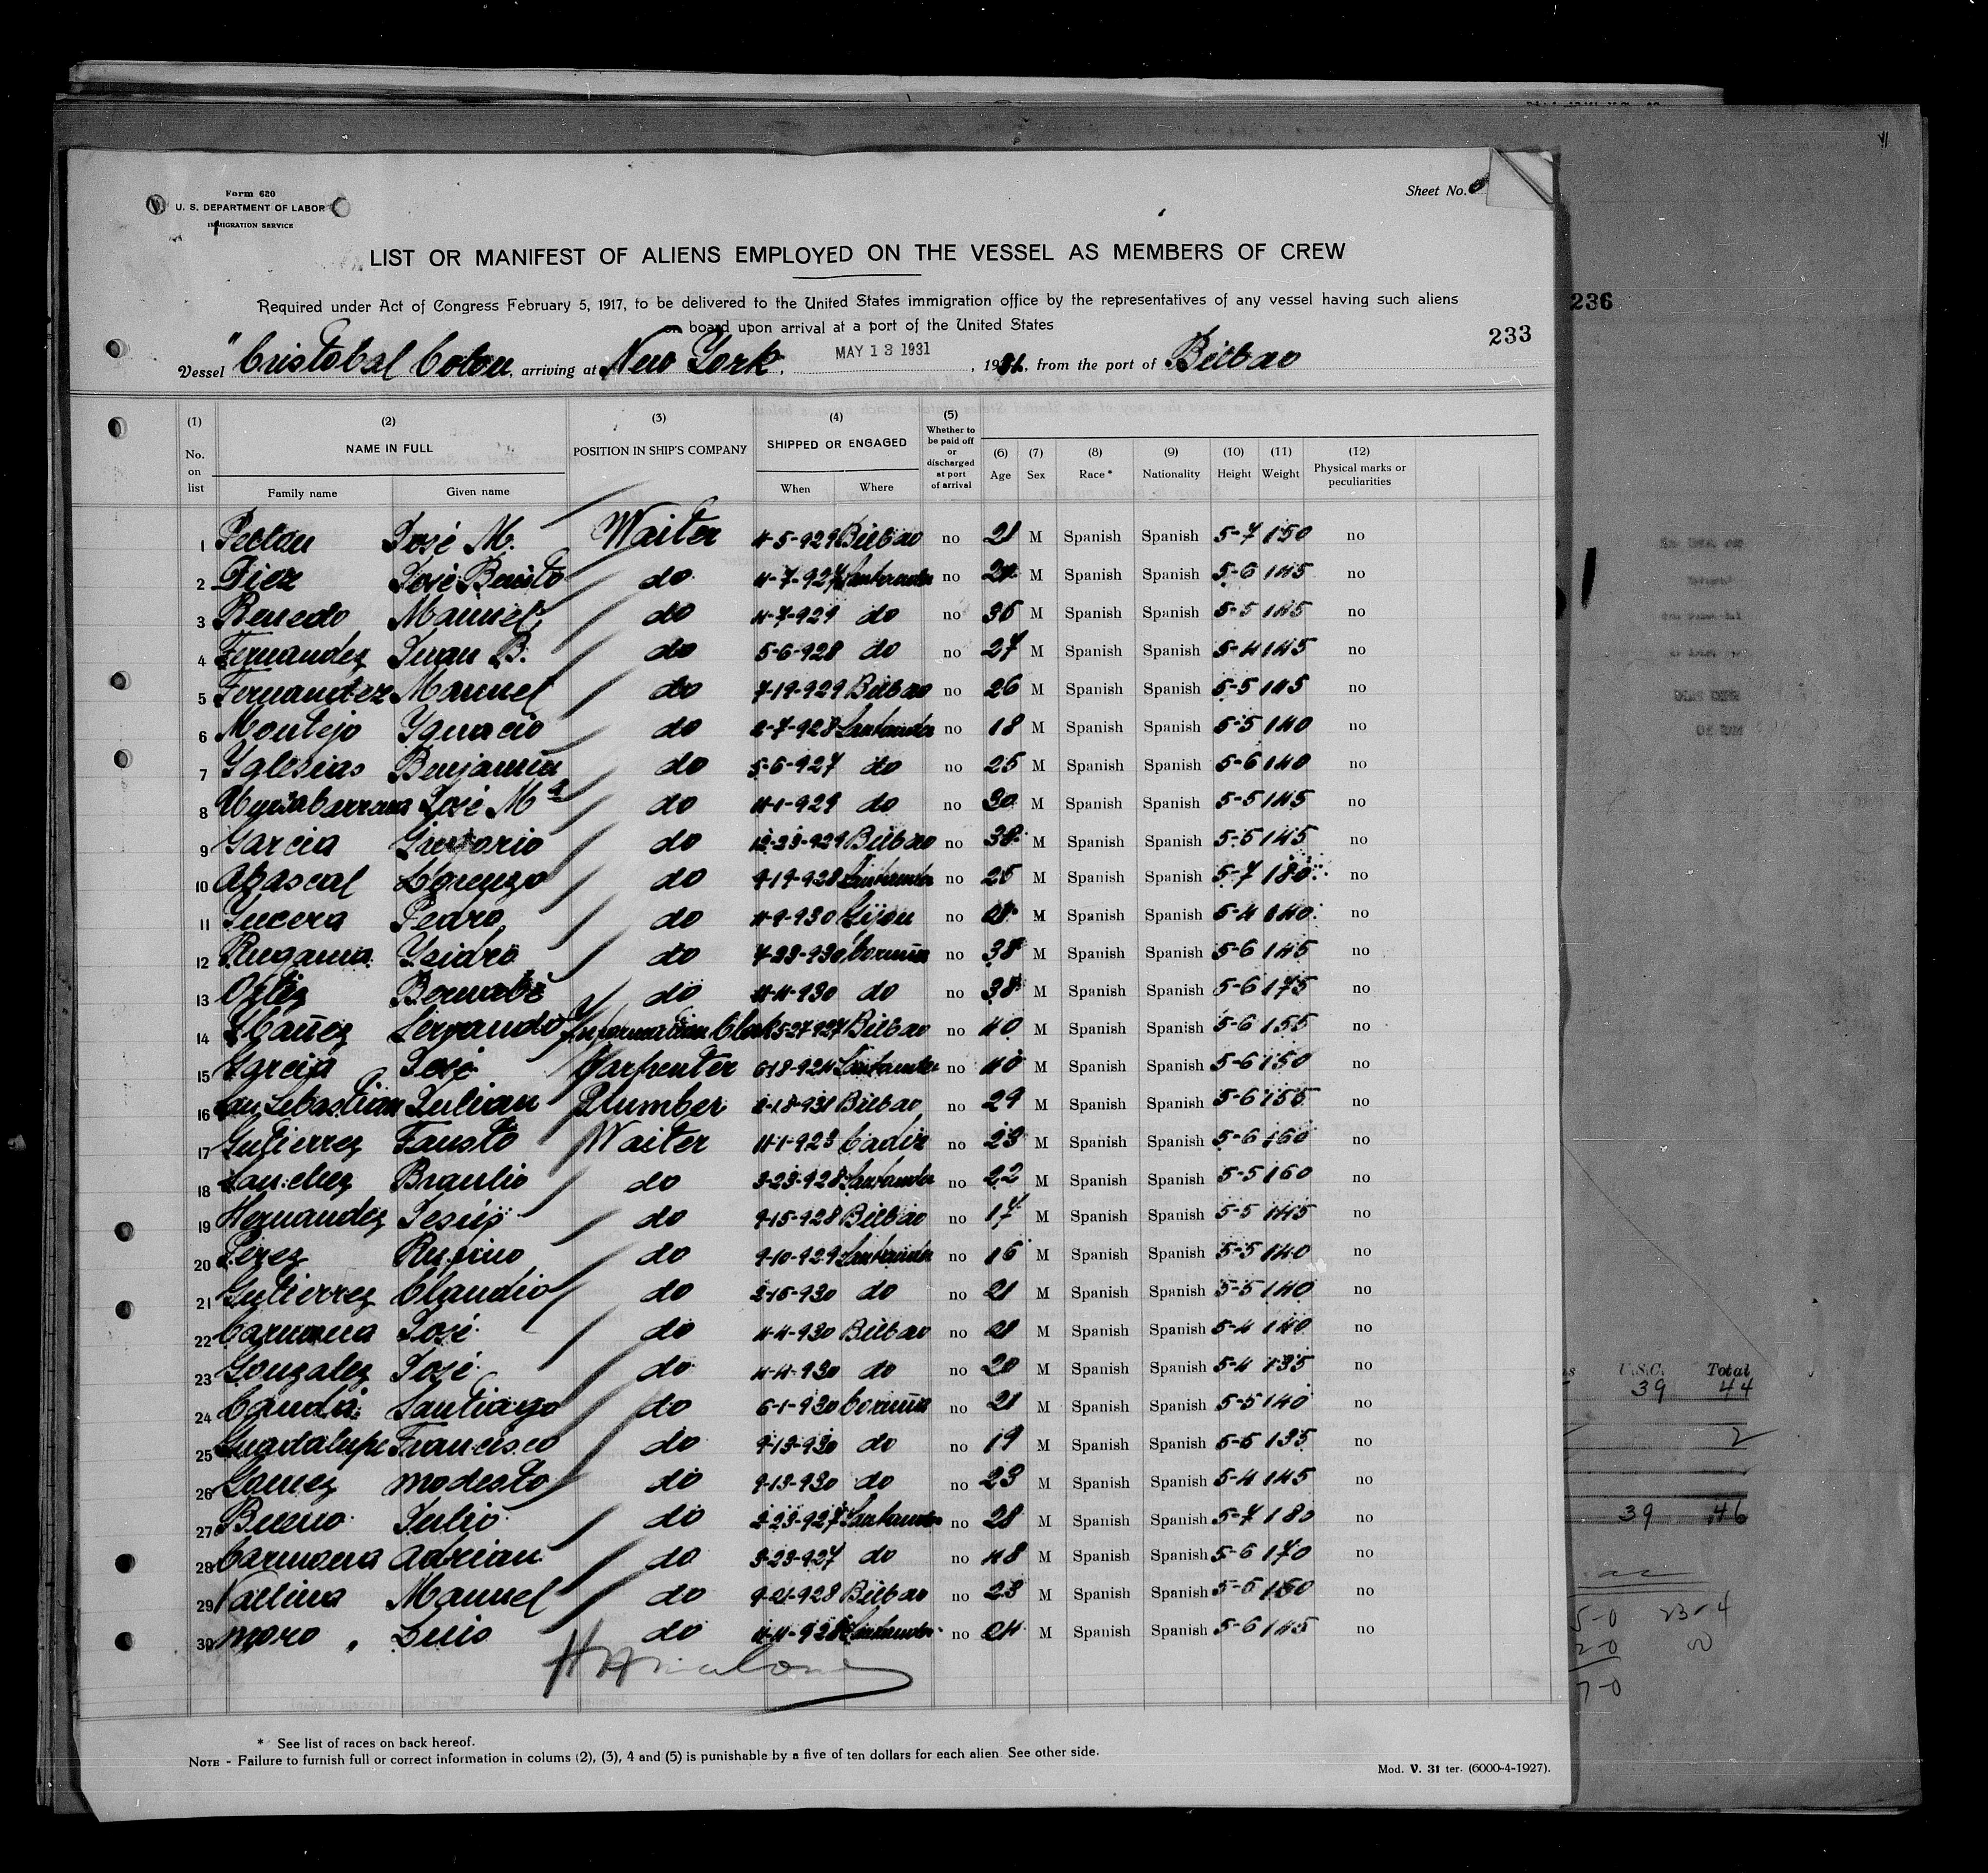 Form 680
U. S. DEPARTMENT OF LABOR
IMMIGRATION SERVICE
Sheet No.
LIST OR MANIFEST OF ALIENS EMPLOYED ON THE VESSEL AS MEMBERS OF CREW
Required under Act of Congress February 5, 1917, to be delivered to the United States immigration office by the representatives of any vessel having such aliens
on board upon arrival at a port of the United States
233
236
Vessel "Cristobal Colon, arriving at New York. MAY 13 1931, 1931, from the port of Bilbao
(1) No. on list (2) NAME IN FULL Family name Given name (3) POSITION IN SHIP'S COMPANY (4) SHIPPED OR ENGAGED When Where (5) Whether to be paid off or discharged at port of arrival (6) Age (7) Sex (8) Race * (9) Nationality (10) Height (11) Weight (12) Physical marks or peculiarities
1 José M. Waiter 4-5-929 Bilbao no 21 M Spanish Spanish 5-7 150 no
2 Diez José Benito do 4-7-927 Santander no M Spanish Spanish 5-6 145 no
3 Renedo Manuel do 4-7-929 do no 36 M Spanish Spanish 5-5 145 no
4 Fernandez Juan B. do 5-6-928 do no 27 M Spanish Spanish 5-4 145 no
5 Fernandez Manuel do 7-19-929 Bilbao no 26 M Spanish Spanish 5-5 145 no
6 Montejo Ygnacio do 2-7-928 Santander no 18 M Spanish Spanish 5-5 140 no
7 Yglesias Benjamin do 5-6-927 do no 25 M Spanish Spanish 5-6 140 no
8 José Mª do 4-1-929 do no 30 M Spanish Spanish 5-5 145 no
9 Garcia Gregorio do 12-23-929 Bilbao no 38 M Spanish Spanish 5-5 145 no
10 Abascal Lorenzo do 9-19-928 Santander no 25 M Spanish Spanish 5-7 180 no
11 Pedro do 4-9-930 Gijon no M Spanish Spanish 5-4 140 no
12 Rugama Ysidro do 7-23-930 Coruña no 38 M Spanish Spanish 5-6 145 no
13 Ortiz Bernabé do 4-4-930 do no 38 M Spanish Spanish 5-6 175 no
14 Ybañez Servando Information Clerk 5-27-927 Bilbao no 40 M Spanish Spanish 5-6 155 no
15 Garcia José Carpenter 6-18-924 Santander no 40 M Spanish Spanish 5-6 150 no
16 San Sebastian Julian Plumber 2-18-931 Bilbao no 29 M Spanish Spanish 5-6 155 no
17 Gutierrez Fausto Waiter 4-1-923 Cadiz no 23 M Spanish Spanish 5-6 160 no
18 Sanchez Braulio do 3-23-928 Santander no 22 M Spanish Spanish 5-5 160 no
19 Hernandez Jesús do 9-15-928 Bilbao no 17 M Spanish Spanish 5-5 145 no
20 Pérez Rufino do 9-10-929 Santander no 16 M Spanish Spanish 5-5 140 no
21 Gutierrez Claudio do 2-15-930 do no 21 M Spanish Spanish 5-5 140 no
22 Carmona José do 4-4-930 Bilbao no 21 M Spanish Spanish 5-4 140 no
23 Gonzalez José do 4-4-930 do no 20 M Spanish Spanish 5-4 135 no
24 Santiago do 6-1-930 Coruña no 21 M Spanish Spanish 5-5 140 no
25 Guadalupe Francisco do 9-13-930 do no 19 M Spanish Spanish 5-5 135 no
26 Gomez Modesto do 9-13-930 do no 23 M Spanish Spanish 5-4 145 no
27 Bueno Julio do 2-23-927 Santander no 28 M Spanish Spanish 5-7 180 no
28 Carmona Adrian do 3-23-927 do no 48 M Spanish Spanish 5-6 170 no
29 Vallina Manuel do 9-21-928 Bilbao no 23 M Spanish Spanish 5-5 150 no
30 Moro Luis do 4-4-928 Santander no 24 M Spanish Spanish 5-6 145 no
* See list of races on back hereof.
NOTE - Failure to furnish full or correct information in colums (2), (3), 4 and (5) is punishable by a five of ten dollars for each alien See other side.
Mod. V. 31 ter. (6000-4-1927).
U.S.C. Total
39 44
2
39 46